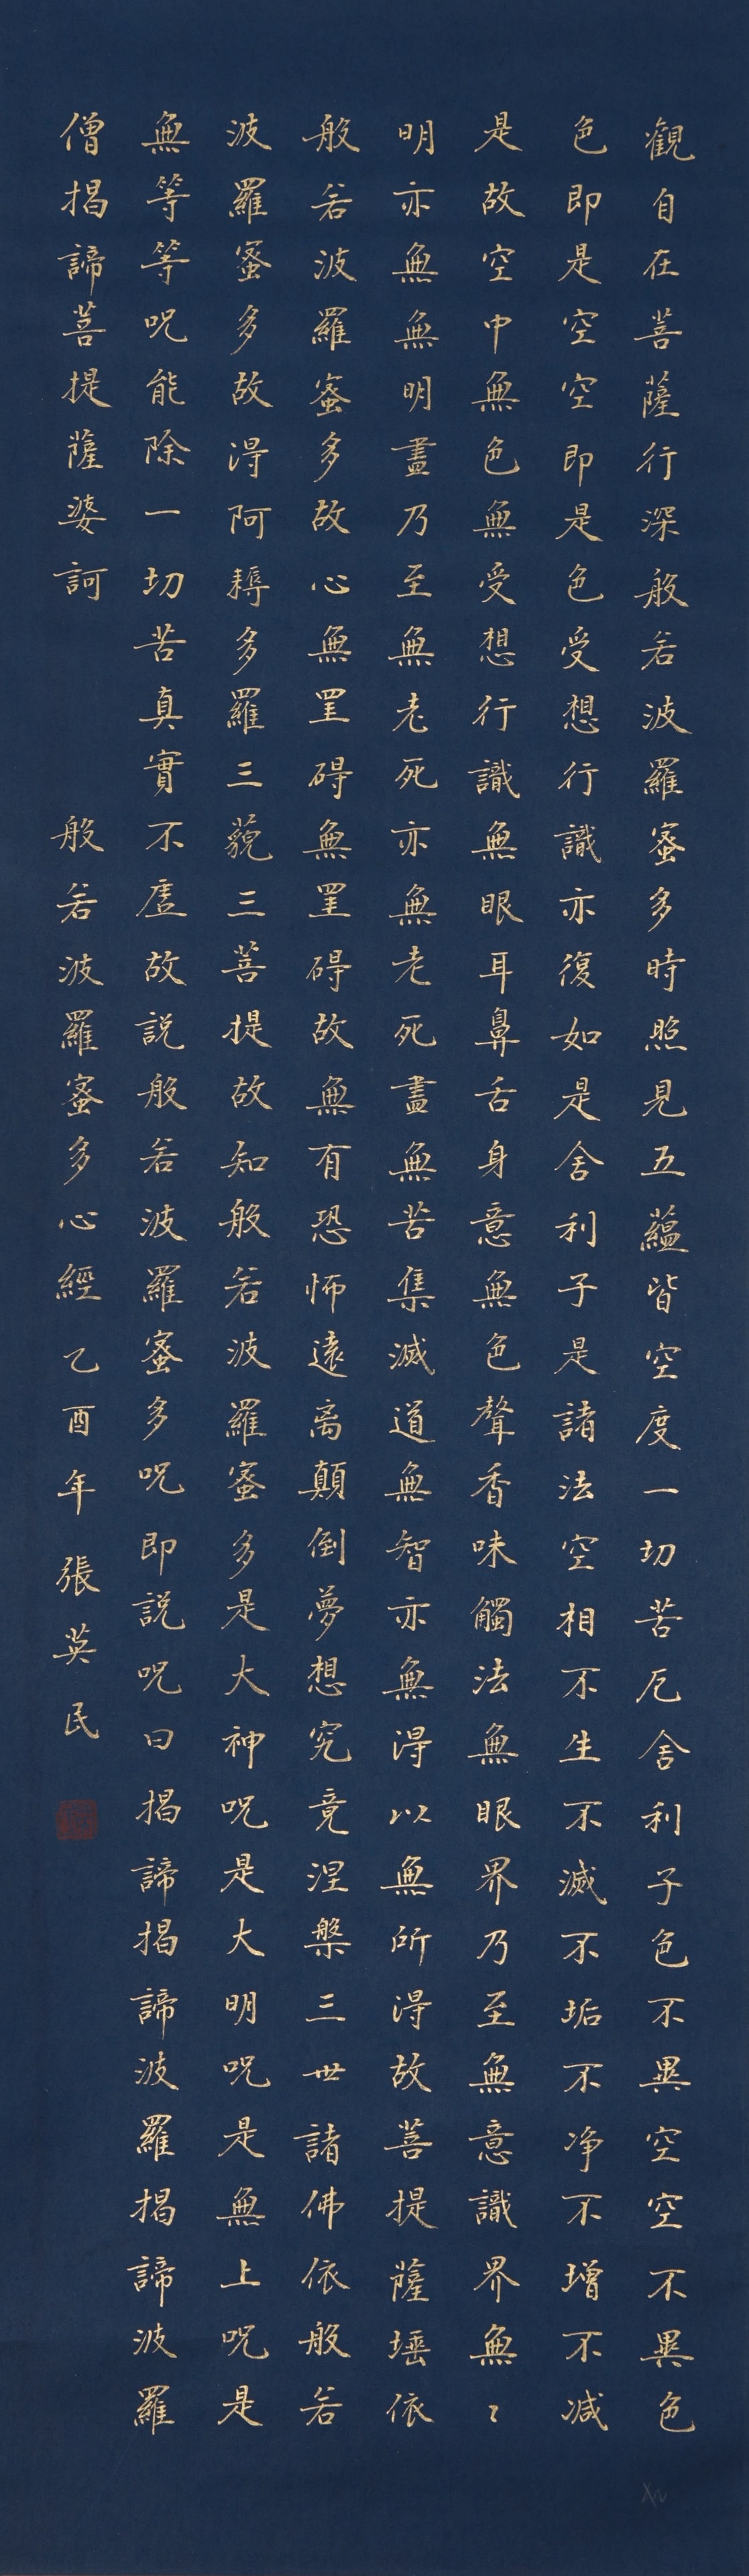 觀自在菩薩行深般若波羅蜜多時照見五蘊皆空度一切苦厄舍利子色不異空空不異色
色即是空空即是色受想行識亦復如是舍利子是諸法空相不生不滅不垢不净不增不减
是故空中無色無受想行識無眼耳鼻舌身意無色聲香味觸法無眼界乃至無意識界無〻
明亦無無明盡乃至無老死亦無老死盡無苦集滅道無智亦無得以無所得故菩提薩埵依
般若波羅蜜多故心無罣碍無罣碍故無有恐怖遠离顛倒夢想究竟涅槃三世諸佛依般若
波羅蜜多故得阿耨多羅三藐三菩提故知般若波羅蜜多是大神呪是大明呪是無上呪是
無等等呪能除一切苦真實不虛故説般若波羅蜜多呪即説呪曰揭諦揭諦波羅揭諦波羅
僧揭諦菩提薩婆訶 般若波羅蜜多心經 乙酉年 張英民